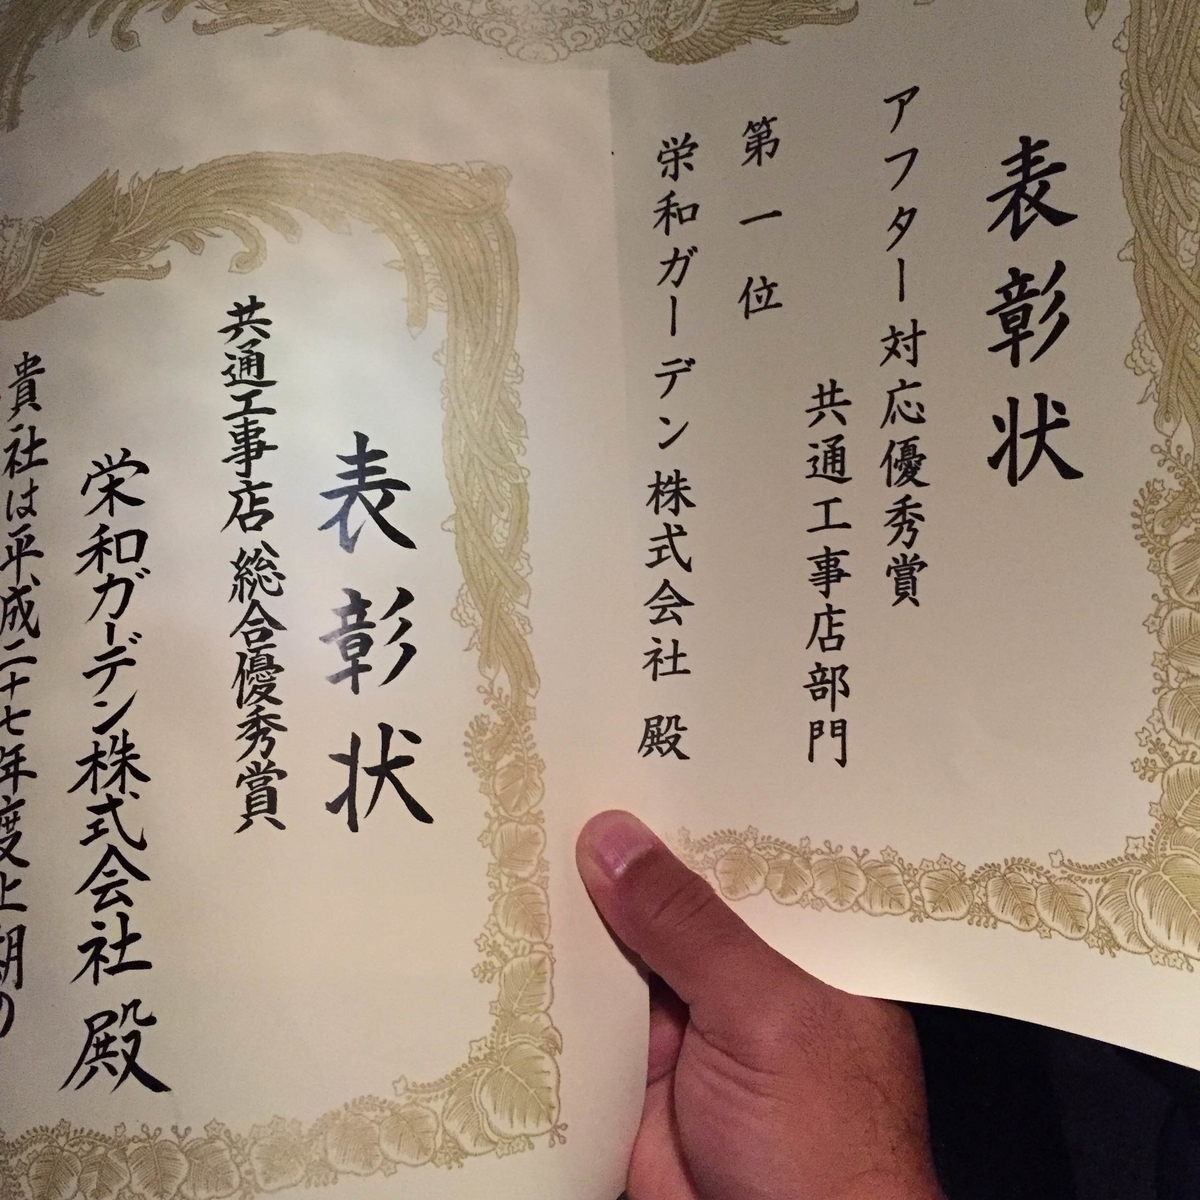 表彰状
アフター対応優秀賞
共通工事店部門
第一位
栄和ガーデン株式会社 殿
表彰状
共通工事店 総合優秀賞
栄和ガーデン株式会社 殿
貴社は平成二十七年度上期の